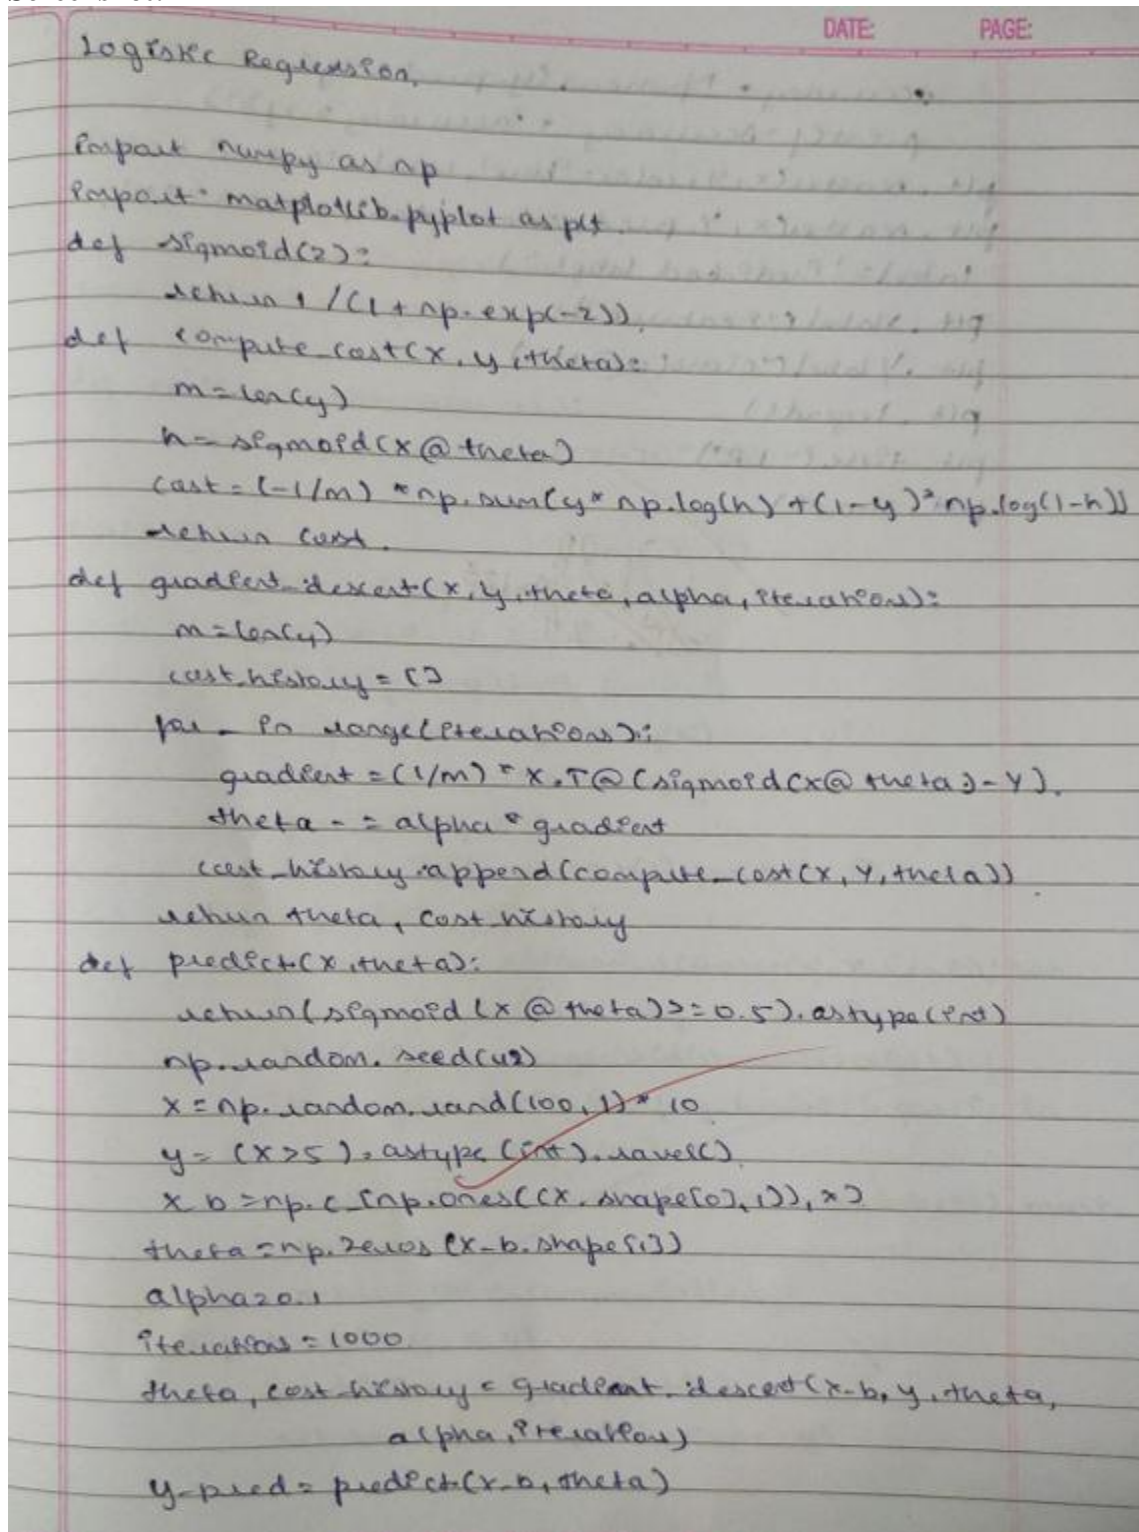 DATE: PAGE:
Logistic Regression.
import numpy as np
import matplotlib.pyplot as plt
def sigmoid(z):
return 1/(1+np.exp(-z))
def compute_cost(x, y, theta):
m=len(y)
h=sigmoid(x@theta)
cost=(-1/m)*np.sum(y*np.log(h)+(1-y)*np.log(1-h))
return cost.
def gradient_descent(x, y, theta, alpha, iterations):
m=len(y)
cost_history=[]
for _ in range(iterations):
gradient=(1/m)*X.T@(sigmoid(x@theta)-y).
theta-=alpha*gradient
cost_history.append(compute_cost(x, y, theta))
return theta, cost_history
def predict(x, theta):
return(sigmoid(x@theta)>=0.5).astype(int)
np.random.seed(42)
x=np.random.rand(100,1)*10
y=(x>5).astype(int).ravel()
x_b=np.c_[np.ones((x.shape[0],1)),x]
theta=np.zeros(x_b.shape[1])
alpha=0.1
iterations=1000
theta, cost_history=gradient_descent(x_b, y, theta,
alpha, iterations)
y_pred=predict(x_b, theta)